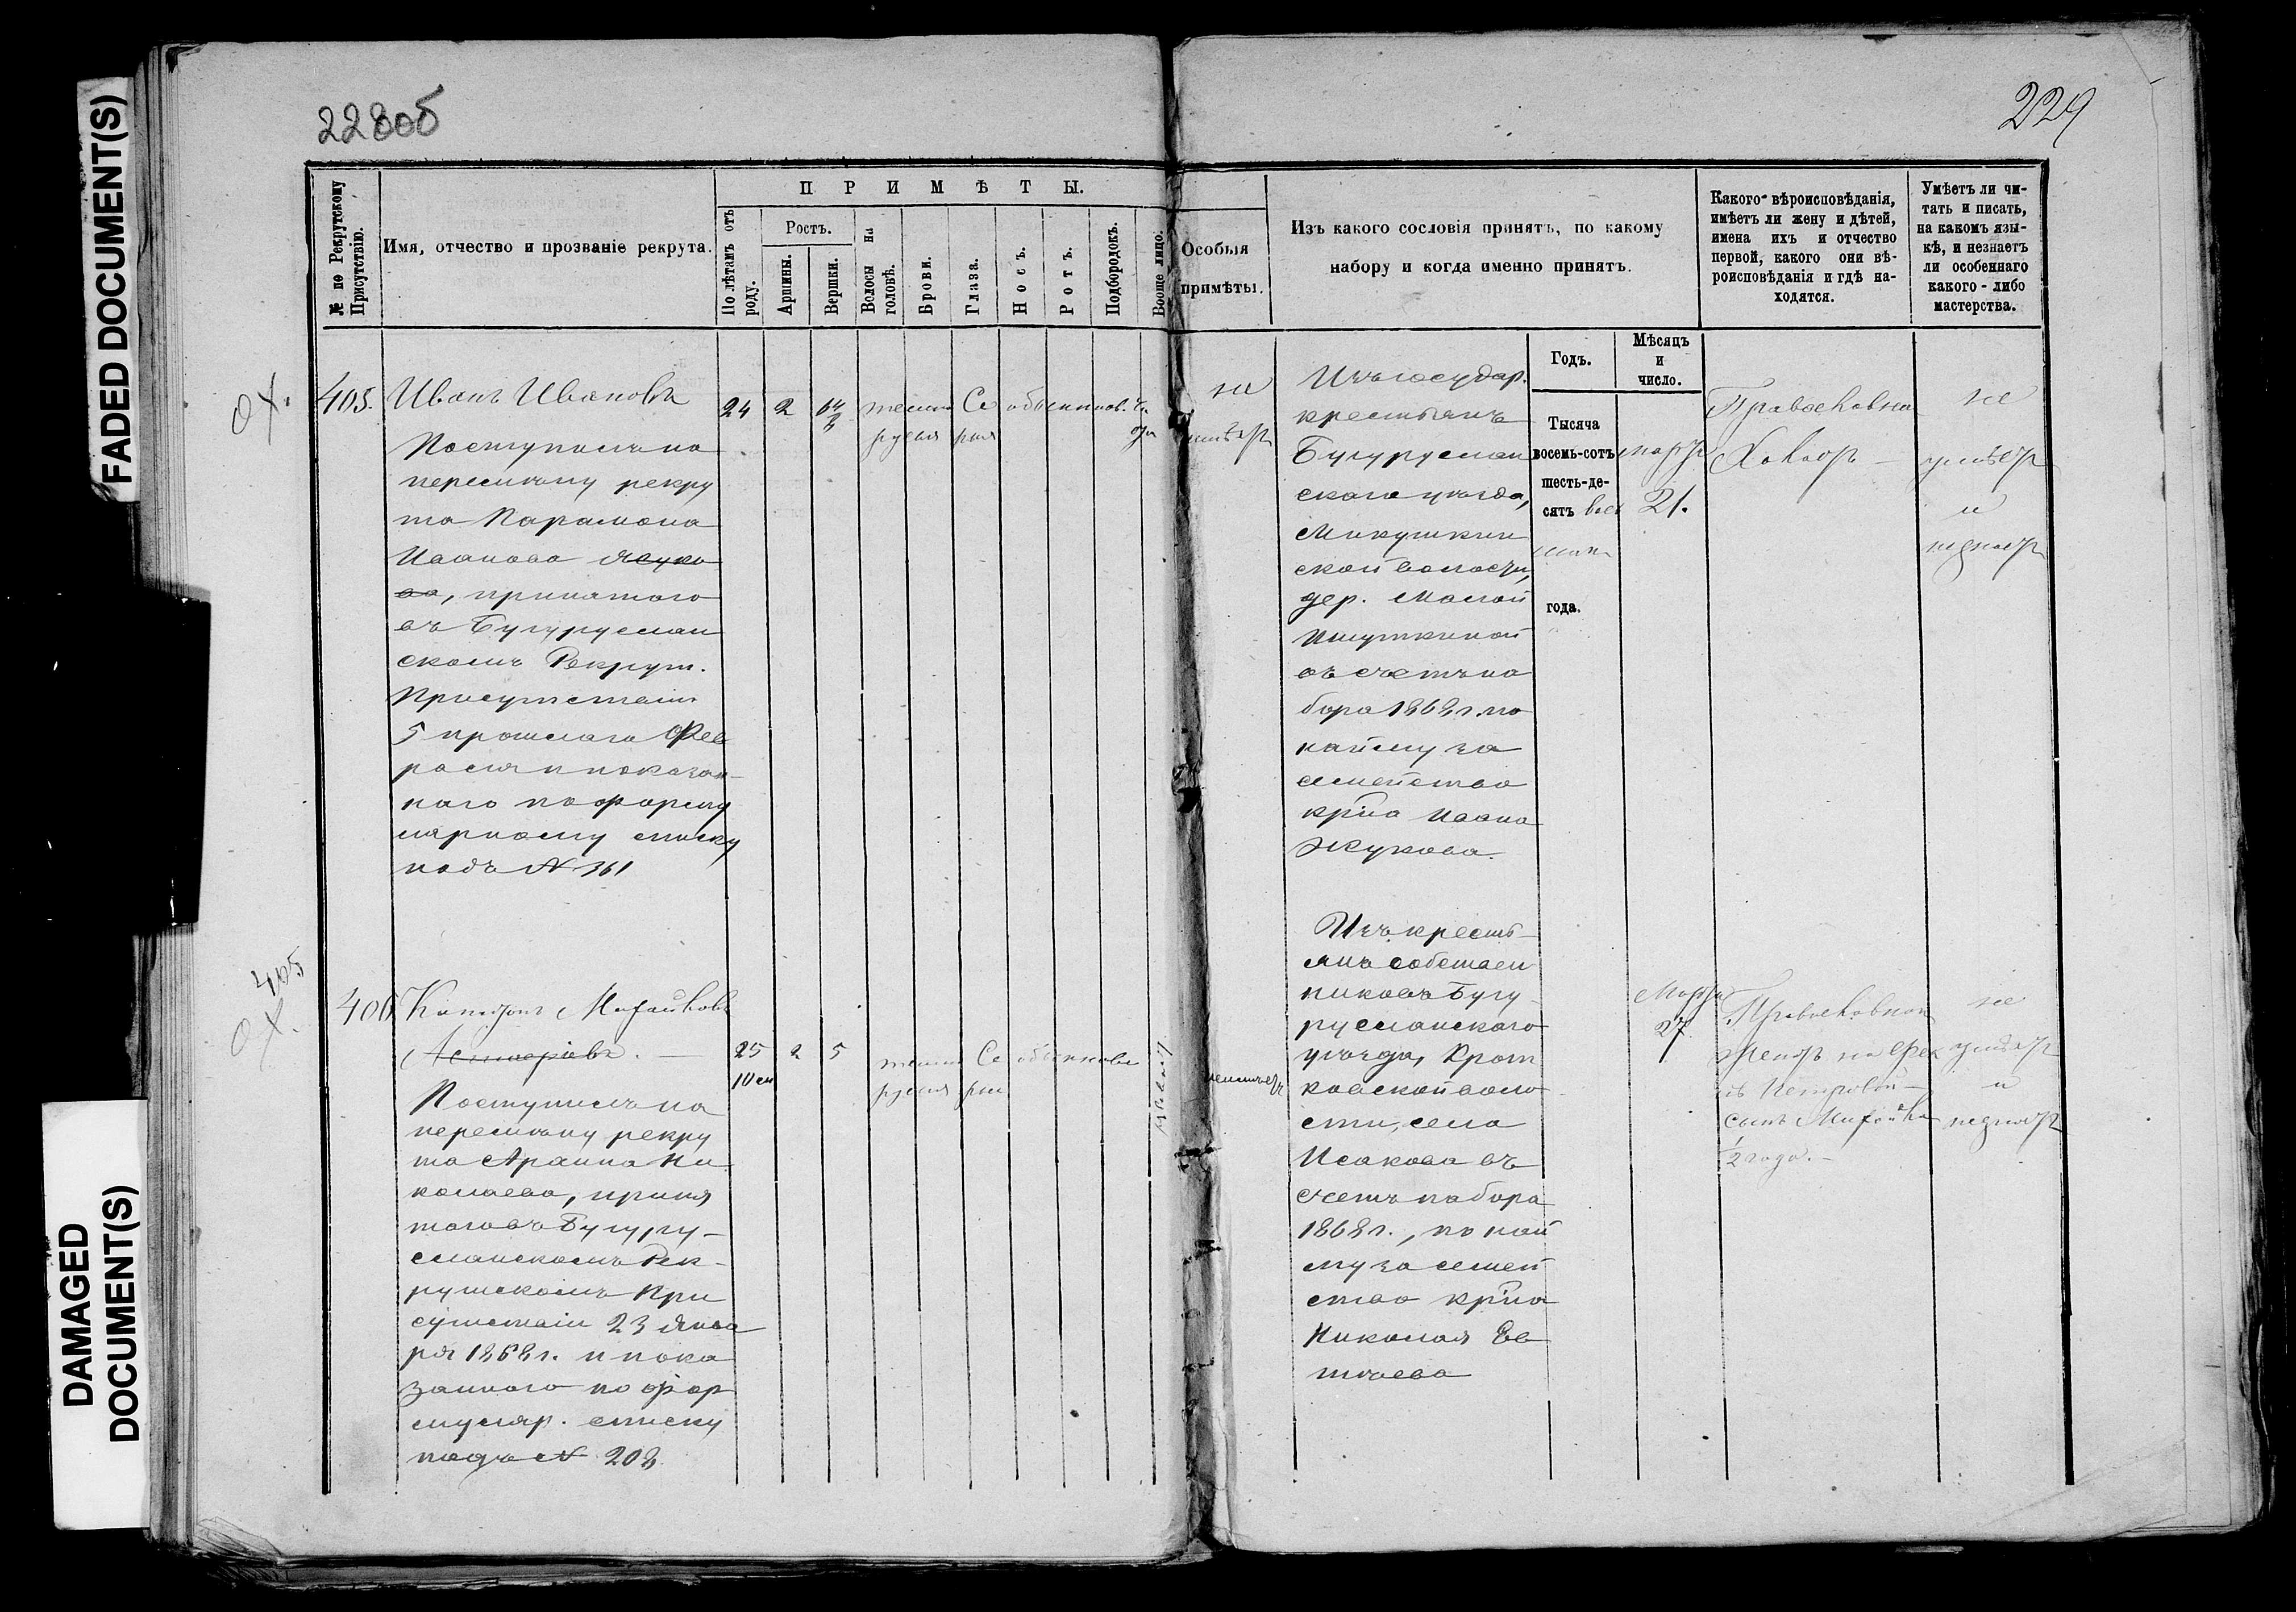 FADED DOCUMENT(S)
DAMAGED
DOCUMENT(S)
228об
229
№ по Рекрутскому Присутствію.
Имя, отчество и прозваніе рекрута.
ПРИМѢТЫ.
По лѣтамъ отъ роду.
Ростъ.
Аршины.
Вершки.
Волосы на головѣ.
Брови.
Глаза.
Носъ.
Ротъ.
Подбородокъ.
Вообще лицо.
Особыя
примѣты.
Изъ какого сословія принятъ, по какому
набору и когда именно принятъ.
Какого вѣроисповѣданія,
имѣетъ ли жену и дѣтей,
имена ихъ и отчество
первой, какого они вѣ-
роисповѣданія и гдѣ на-
ходятся.
Умѣетъ ли чи-
тать и писать,
на какомъ язы-
кѣ, и незнаетъ
ли особеннаго
какого-либо
мастерства.
Годъ.
Мѣсяцъ
и
число.
Тысяча
восемь-сотъ
шесть-де-
сятъ вось
года.
405.
Иванъ Ивановъ
Поступилъ на
переслану рекру
та Парамона
Иванова
, принятого
въ Бугуруслан
скомъ Рекрут.
Присутствіи
5 прошлаго Фев
раля и показан-
наго по форму
лярному списку
подъ № 361
24
2
темно
русыя
Се
рыя
обыкнов.
не
имѣетъ
Изъ государ.
крестьянъ
Бугуруслан
скаго уѣзда,
Микушкин
ской волости,
дер. Малой
Ишуткиной
въ счетъ на
бора 1868 г. по
найму за
семейство
кр-на Ивана
Жукова.
марта
21.
Православнаго
Холостъ
не
умѣетъ
и
незнаетъ
405
406
Михайловъ
Поступилъ на
переслану рекру
та Ни
колаева, приня
таго въ Бугуру-
сланскомъ Рек-
рутскомъ При
сутствіи 23 Янва
ря 1868 г. и пока
заннаго по фор
муляр. списку
подъ № 208
25
2
5
темно
русыя
Се
рыя
обыкновен
неимѣетъ
Изъ кресть-
янъ собствен
никовъ Бугу-
русланскаго
уѣзда, Крот
ковской воло
сти, села
Исакова въ
счетъ набора
1868 г., по най
му за семей
ство кр-на
Николая Ев
Марта
27
Православнаго
женатъ на
Петровой
сынъ Михайла
1/2 года.
не
умѣетъ
и
незнаетъ